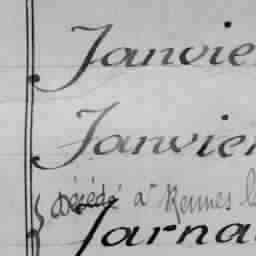 Janvier
Janvier
Décédé à Rennes le
Jarna